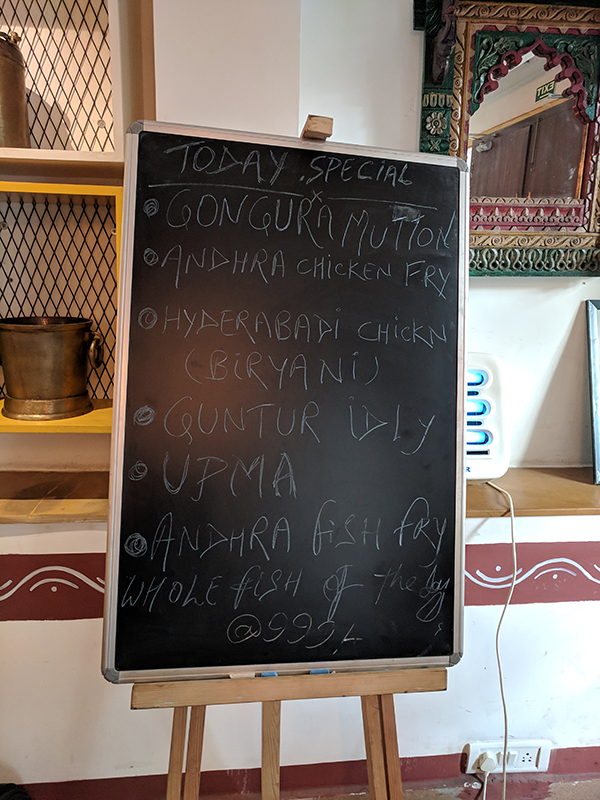 TODAY. SPECIAL
GONGURA MUTTON
ANDHRA CHICKEN FRY
HYDERABADI CHICKN
(BIRYANI)
GUNTUR iDLy
UPMA
ANDHRA fiSH fRy
WHOLE fiSH of The day
@999/-